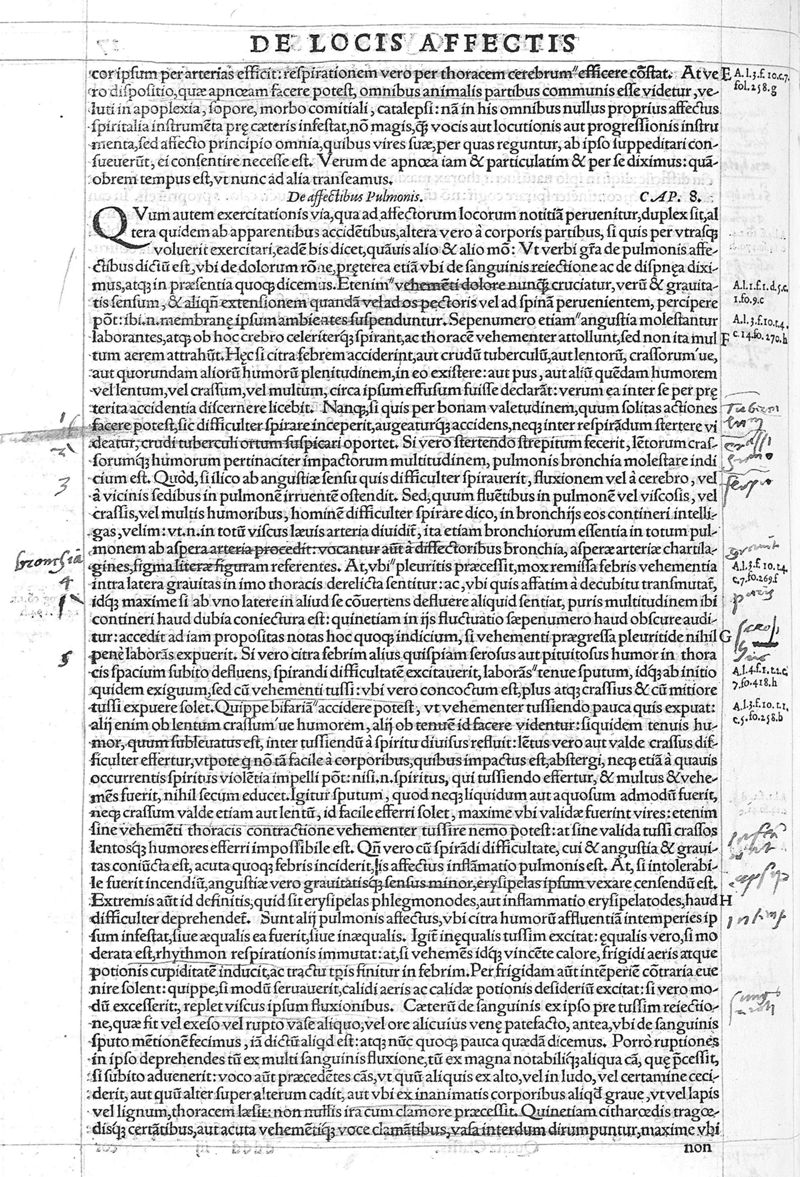 DE LOCIS AFFECTIS
cor ipsum per arterias efficit: respirationem vero per thoracem cerebrum" efficere cõstat. At ve E A.l.3.f.10.c.7.
ro dispositio, quæ apnœam facere potest, omnibus animalis partibus communis esse videtur, ve- fol.258.g
luti in apoplexia, sopore, morbo comitiali, catalepsi: nã in his omnibus nullus proprius affectus
spiritalia instrumẽta pre cæteris infestat, nõ magis, q̃ vocis aut locutionis aut progressionis instru
menta, sed affecto principio omnia, quibus vires suæ, per quas reguntur, ab ipso suppeditari con-
sueuerũt, ei consentire necesse est. Verum de apnœa iam & particulatim & per se diximus: quã-
obrem tempus est, vt nunc ad alia transeamus.
De affectibus Pulmonis. CAP. 8.
QVum autem exercitationis via, qua ad affectorum locorum notitiã peruenitur, duplex sit, al
tera quidem ab apparentibus accidẽtibus, altera vero à corporis partibus, si quis per vtrasq;
voluerit exercitari, eadẽ bis dicet, quãuis alio & alio mõ: Vt verbi gr̃a de pulmonis affe-
ctibus dictũ est, vbi de dolorum rõne, preterea etiã vbi de sanguinis reiectione ac de dispnea dixi-
mus, atq; in præsentia quoq; dicemus. Etenim" vehementi dolore nunq̃ cruciatur, verũ & grauita- A.l.1.f.1.d.5.c.
tis sensum, & aliqñ extensionem quandã vel ad os pectoris vel ad spinã peruenientem, percipere 1.fo.9.c
põt: ibi.n. membrane ipsum ambientes suspenduntur. Sepenumero etiam" angustia molestantur A.l.3.f.10.t.4.
laborantes, atq; ob hoc crebro celeriterq; spirant, ac thoracẽ vehementer attollunt, sed non ita mul F c.14.fo.270.h
tum aerem attrahũt. Hec si citra febrem acciderint, aut crudũ tuberculũ, aut lentorũ, crassorum'ue,
aut quorundam aliorũ humorũ plenitudinem, in eo existere: aut pus, aut aliũ quẽdam humorem
vel lentum, vel crassum, vel multum, circa ipsum effusum fuisse declarãt: verum ea inter se per pre
terita accidentia discernere licebit. Nanq;, si quis per bonam valetudinem, quum solitas actiones
facere potest, sic difficulter spirare inceperit, augeaturq; accidens, neq; inter respirãdum stertere vi
deatur, crudi tuberculi ortum suspicari oportet. Si vero stertendo strepitum fecerit, lẽtorum cras-
sorumq; humorum pertinaciter impactorum multitudinem, pulmonis bronchia molestare indi
cium est. Quòd, si ilico ab angustiæ sensu quis difficulter spirauerit, fluxionem vel à cerebro, vel
à vicinis sedibus in pulmonẽ irruentẽ ostendit. Sed, quum fluẽtibus in pulmonẽ vel viscosis, vel
crassis, vel multis humoribus, hominẽ difficulter spirare dico, in bronchijs eos contineri intelli
gas, velim: vt.n. in totũ viscus læuis arteria diuidit̃, ita etiam bronchiorum essentia in totum pul-
monem ab aspera arteria procedit: vocantur aũt à dissectoribus bronchia, asperæ arteriæ chartila-
gines, sigma literæ figuram referentes. At, vbi" pleuritis præcessit, mox remissa febris vehementia A.l.3.f.10.t.4.
intra latera grauitas in imo thoracis derelicta sentitur: ac, vbi quis affatim à decubitu transmutat̃, c.7.fo.269.f
idq; maxime si ab vno latere in aliud se cõuertens defluere aliquid sentiat, puris multitudinem ibi
contineri haud dubia coniectura est: quinetiam in ijs fluctuatio sæpenumero haud obscure audi-
tur: accedit ad iam propositas notas hoc quoq; indicium, si vehementi prægressa pleuritide nihil G
penè laborãs expuerit. Si vero citra febrim alius quispiam serosus aut pituitosus humor in thora
cis spacium subito defluens, spirandi difficultatẽ excitauerit, laborãs" tenue sputum, idq; ab initio A.l.4.f.1.t.2.c.
quidem exiguum, sed cũ vehementi tussi: vbi vero concoctum est, plus atq; crassius & cũ mitiore 7.fo.418.h
tussi expuere solet. Quippe bifariã" accidere potest, vt vehementer tussiendo pauca quis expuat: A.l.3.f.10.t.1.
alij enim ob lentum crassum'ue humorem, alij ob tenuẽ id facere videntur: siquidem tenuis hu- c.5.fo.258.b
mor, quum subleuatus est, inter tussiendũ à spiritu diuisus refluit: lẽtus vero aut valde crassus dif-
ficulter effertur, vtpote q nõ tã facile à corporibus, quibus impactus est, abstergi, neq; etiã à quauis
occurrentis spiritus violẽtia impelli põt: nisi.n. spiritus, qui tussiendo effertur, & multus & vehe-
mẽs fuerit, nihil secum educet. Igitur sputum, quod neq; liquidum aut aquosum admodũ fuerit,
neq; crassum valde etiam aut lentũ, id facile efferri solet, maxime vbi validæ fuerint vires: etenim
sine vehemẽti thoracis contractione vehementer tussire nemo potest: at sine valida tussi crassos
lentosq; humores efferri impossibile est. Qñ vero cũ spirãdi difficultate, cui & angustia & graui-
tas coniũcta est, acuta quoq; febris inciderit, ijs affectus inflãmatio pulmonis est. At, si intolerabi-
le fuerit incendiũ, angustiæ vero grauitatisq; sensus minor, erysipelas ipsum vexare censendũ est.
Extremis aũt id definitis, quid sit erysipelas phlegmonodes, aut inflammatio erysipelatodes, haud H
difficulter deprehendet̃. Sunt alij pulmonis affectus, vbi citra humorũ affluentiã intemperies ip
sum infestat, siue æqualis ea fuerit, siue inæqualis. Igit̃ inequalis tussim excitat: equalis vero, si mo
derata est, rhythmon respirationis immutat: at, si vehemẽs idq; vincẽte calore, frigidi aeris atque
potionis cupiditatẽ inducit, ac tractu tp̃is finitur in febrim. Per frigidam aũt intẽperiẽ cõtraria eue
nire solent: quippe, si modũ seruauerit, calidi aeris ac calidæ potionis desideriũ excitat: si vero mo-
dũ excesserit, replet viscus ipsum fluxionibus. Cæterũ de sanguinis ex ipso pre tussim reiectio-
ne, quæ fit vel exeso vel rupto vase aliquo, vel ore alicuius vene patefacto, antea, vbi de sanguinis
sputo mẽtionẽ fecimus, iã dictũ aliqd est: atq; nũc quoq; pauca quædã dicemus. Porrò ruptiones
in ipso deprehendes tũ ex multi sanguinis fluxione, tũ ex magna notabiliq; aliqua cã, que p̃cessit,
si subito aduenerit: voco aũt præcedẽtes cãs, vt quũ aliquis ex alto, vel in ludo, vel certamine ceci-
derit, aut quũ alter super alterum cadit, aut vbi ex inanimatis corporibus aliqd graue, vt vel lapis
vel lignum, thoracem læsit: non nullis ira cum clamore præcessit. Quinetiam citharœdis tragœ-
disq; certãtibus, aut acuta vehemẽtiq; voce clamãtibus, vasa interdum dirumpuntur, maxime vbi
non